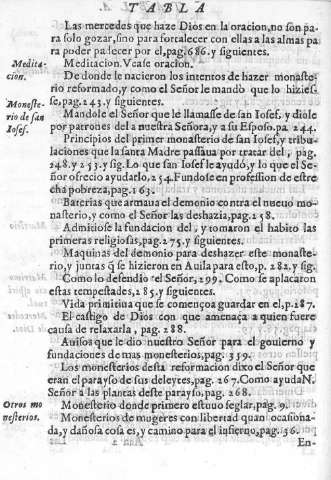 TABLA
Las mercedes que haze Dios en la oracion, no son pa-
ra solo gozar, sino para fortalecer con ellas a las almas pa
ra poder padecer por el, pag. 686. y siguientes.
Medita-
cion.
Meditacion. Vease oracion.
De donde le nacieron los intentos de hazer monaste-
rio reformado, y como el Señor le mandò que lo hizies-
se, pag. 243. y siguientes.
Monaste-
rio de san
Iosef.
Mandole el Señor que le llamasse de san Iosef. y diole
por patrones del a nuestra Señora, y a su Esposo. pa. 244.
Principios del primer monasterio de san Iosef, y tribu-
laciones que la santa Madre passaua por tratar del, pag.
248. y 253. y sig. Lo que san Iosef le ayudó, y lo que el Se-
ñor ofrecio ayudarlo, 254. Fundose en profession de estre
cha pobreza, pag. 263.
Baterias que armaua el demonio contra el nueuo mo-
nasterio, y como el Señor las deshazia, pag. 258.
Admitiose la fundacion del, y tomaron el habito las
primeras religiosas, pag. 275. y siguientes.
Maquinas del demonio para deshazer este monaste-
rio, y juntas q̃ se hizieron en Auila para esto, p. 282. y sig.
Como lo defendio el Señor, 299. Como se aplacaron
estas tempestades, 285. y siguientes.
Vida primitiua que se començoa guardar en el, p. 287.
El castigo de Dios con que amenaça a quien fuere
causa de relaxarla, pag. 288.
Auisos que le dio nuestro Señor para el gouierno y
fundaciones de mas monesterios, pag. 359.
Los monesterios desta reformacion dixo el Señor que
eran el parayso de sus deleytes, pag. 267. Como ayuda N.
Señor a las plantas deste parayso, pag. 268.
Otros mo
nesterios.
Monesterio donde primero estuuo seglar, pag. 9.
Monesterios de mugeres con libertad quan ocasiona-
da, y dañosa cosa es, y camino para el infierno, pag. 56.
En-